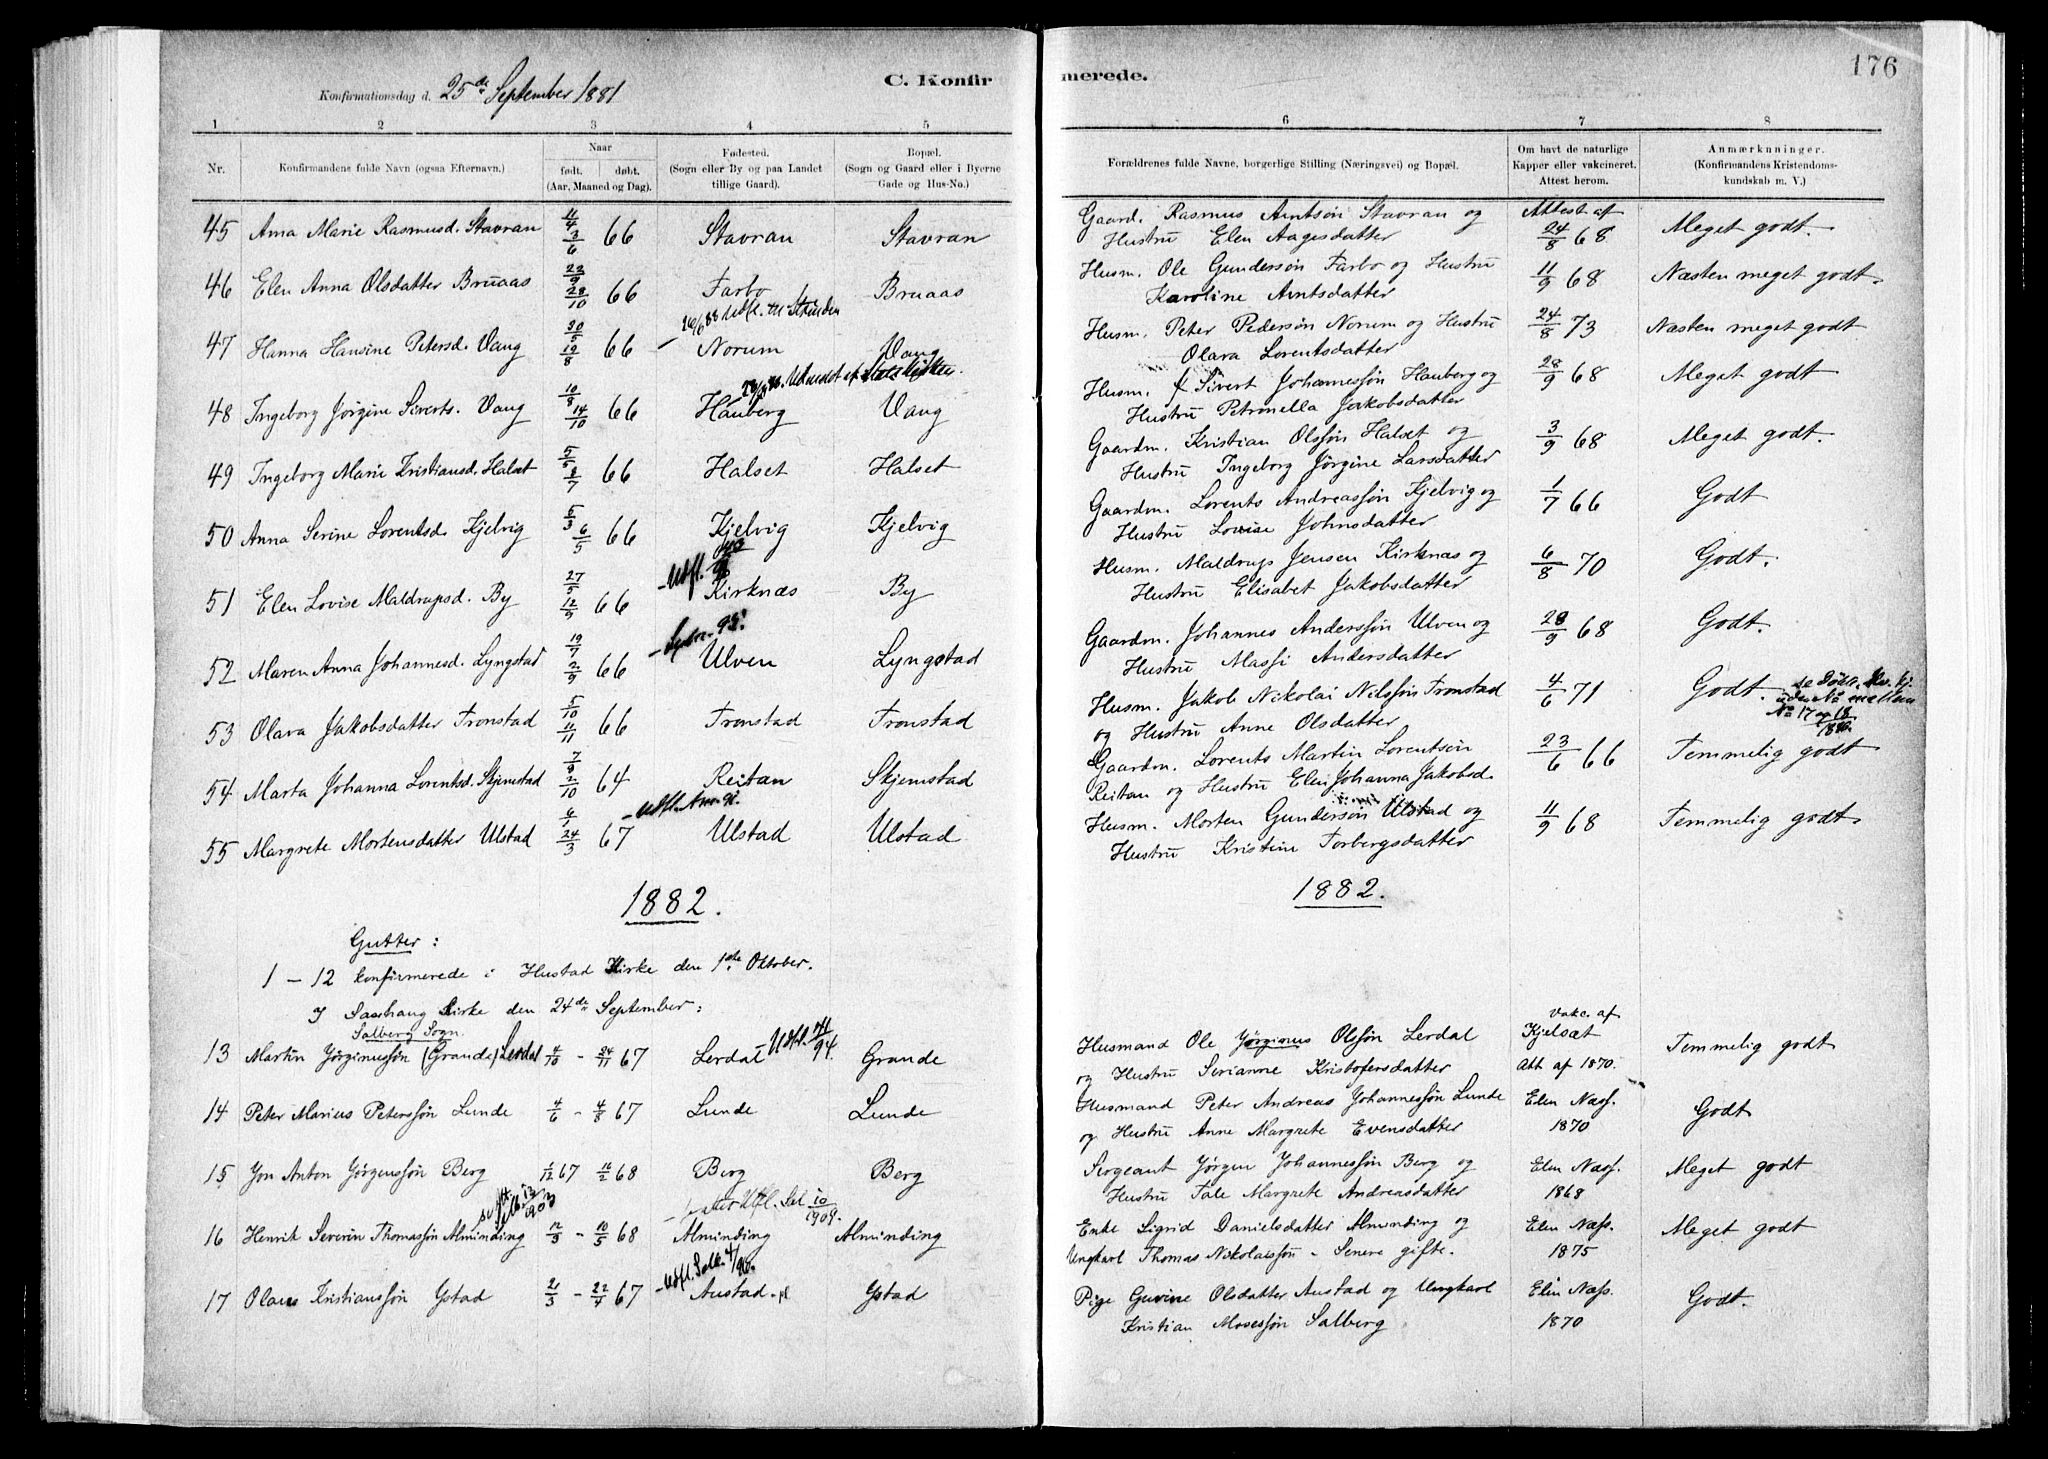 176
Konfirmationsdag d. 25de September 1881
C. Konfir
merede.
1 2 3 4 5 6 7 8
Nr.
Konfirmandens fulde Navn (ogsaa Efternavn.)
Naar
født. døbt.
(Aar, Maaned og Dag).
Fødested.
(Sogn eller By og paa Landet
tillige Gaard).
Bopæl.
(Sogn og Gaard eller i Byerne
Gade og Hus-No.)
Forældrenes fulde Navne, borgerlige Stilling (Næringsvei) og Bopæl.
Om havt de naturlige
Kapper eller vakcineret.
Attest herom.
Anmærkninger.
(Konfirmandens Kristendoms-
kundskab m. V.)
45 Anna Marie Rasmusd. Stavran 11/4 3/6 66 Stavran Stavran Gaard. Rasmus Arntsøn Stavran og Attest af
Hustru Elen Aagesdatter 24/8 68 Meget godt.
46 Elen Anna Olsdatter Bruaas 23/9 28/10 66 Farbo Bruaas Husm. Ole Gundersøn Farbo og Hustru 11/9 68 Næsten meget godt.
Karoline Arntsdatter
Udfl. til Strinden
47 Hanna Hansine Petersd. Vang 30/5 19/8 66 Norum Vang Husm. Peter Pedersøn Norum og Hustru 24/8 73 Næsten meget godt
Olava Lorentsdatter
Udmeldt af Statskirken.
48 Ingeborg Jørgine Siverts. Vang 10/8 14/10 66 Hauberg Vang Husm. Sivert Johannessøn Hauberg og 28/9 68 Meget godt
Hustru Petronella Jakobsdatter
49 Ingeborg Marie Kristiansd. Halset 5/5 8/7 66 Halset Halset Gaardm. Kristian Olssøn Halset og 3/9 68 Meget godt.
Hustru Ingeborg Jørgine Larsdatter
50 Anna Serine Lorentsd. Kjelvig 5/3 6/5 66 Kjelvig Kjelvig Gaardm. Lorents Andreassøn Kjelvig og 1/7 66 Godt
Hustru Lovise Johnsdatter
Udfl.
51 Elen Lovise Maldrupsd. By 27/5 12/9 66 Kirknæs By Husm. Maldrup Jensen Kirknæs og 6/8 70 Godt.
Hustru Elisabet Jakobsdatter
52 Maren Anna Johannesd. Lyngstad 19/7 2/9 66 Ulven Lyngstad Gaardm. Johannes Anderssøn Ulven og 28/9 68 Godt.
Hustru Massi Andersdatter
53 Olava Jakobsdatter Tronstad 5/10 11/11 66 Tronstad Tronstad Husm. Jakob Nikolai Nilssøn Tronstad 4/6 71 Godt.
og Hustru Anne Olsdatter
No 17 og 18
54 Marta Johanna Lorentsd. Skjemstad 7/9 2/10 64 Reitan Skjemstad Gaardm. Lorents Martin Lorentsøn 23/6 66 Temmelig godt
Reitan og Hustru Elen Johanna Jakobsd.
55 Margrete Mortensdatter Ulstad 6/1 24/3 67 Ulstad Ulstad Husm. Morten Gundersøn Ulstad og 11/9 68 Temmelig godt.
Hustru Kristine Torbergsdatter
1882. 1882.
Gutter:
1 – 12 konfirmerede i Hustad Kirke den 1ste Oktober.
I Saxhaug Kirke den 24de September:
Salberg Sogn.
13 Martin Jørginussøn (Grande) Lerdal 4/10 – 24/11 67 Lerdal Udfl. Grande Husmand Ole Jørginus Olssøn Lerdal Vakc. af
Kjelsæt
og Hustru Serianne Kristofersdatter Att af 1870. Temmelig godt
14 Peter Marius Peterssøn Lunde 4/6 – 4/8 67 Lunde Lunde Husmand Peter Andreas Johannessøn Lunde Elen Næss.
og Hustru Anne Margrete Evensdatter 1870 Godt
15 Jon Anton Jørgenssøn Berg 1/12 67 16/2 68 Berg Berg Sergeant Jørgen Johannessøn Berg og Elen Næss. Meget godt
Hustru Tale Margrete Andreasdatter 1868
16 Henrik Severin Thomassøn Alminding 12/3 – 10/5 68 Alminding Alminding Enke Sigrid Danielsdatter Alminding og Elen Næss. Meget godt
Ungkarl Thomas Nikolaissøn – Senere gifte. 1875
17 Olaus Kristianssøn Ystad 21/3 – 22/4 67 Austad Ystad Pige Gurine Olsdatter Austad og Ungkarl Elen Næss. Godt.
Kristian Mosessøn Salberg 1870